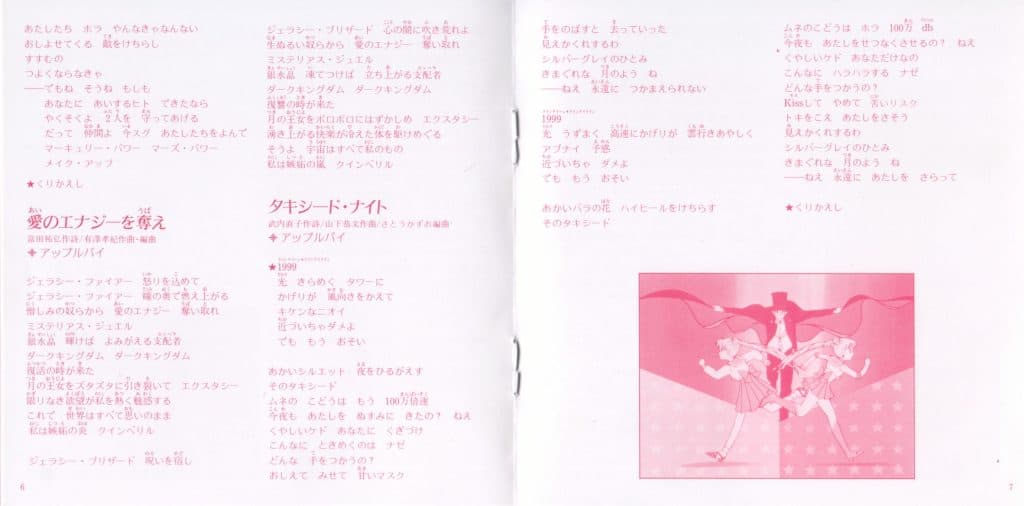 あたしたち ホラ やんなきゃなんない
おしよせてくる 敵をけちらし
すすむの
つよくならなきゃ
──でもね そうね もしも
あなたに あいするヒト できたなら
やくそくよ 2人を 守ってあげる
だって 仲間よ 今スグ あたしたちをよんで
マーキュリー・パワー マーズ・パワー
メイク・アップ
★くりかえし
愛のエナジーを奪え
冨田祐弘作詩/有澤孝紀作曲・編曲
✦アップルパイ
ジェラシー・ファイアー 怒りを込めて
ジェラシー・ファイアー 瞳の奥で燃え上がる
憎しみの奴らから 愛のエナジー 奪い取れ
ミステリアス・ジュエル
銀水晶 輝けば よみがえる支配者
ダークキングダム ダークキングダム
復活の時が来た
月の王女をズタズタに引き裂いて エクスタシー
限りなき欲望が私を熱く魅惑する
これで 世界はすべて思いのまま
私は嫉妬の炎 クインベリル
ジェラシー・ブリザード 呪いを宿し
6
ジェラシー・ブリザード 心の闇に吹き荒れよ
生ぬるい奴らから 愛のエナジー 奪い取れ
ミステリアス・ジュエル
銀水晶 凍てつけば 立ち上がる支配者
ダークキングダム ダークキングダム
復讐の時が来た
月の王女をボロボロにはずかしめ エクスタシー
湧き上がる快楽が冷えた体を駆けめぐる
そうよ 宇宙はすべて私のもの
私は嫉妬の嵐 クインベリル
タキシード・ナイト
武内直子作詩/山下恭文作曲/さとうかずお編曲
✦アップルパイ
★1999
光 きらめく タワーに
かげりが 風向きをかえて
キケンなニオイ
近づいちゃダメよ
でも もう おそい
あかいシルエット 夜をひるがえす
そのタキシード
ムネの こどうは もう 100万倍速
今夜も あたしを ぬすみに きたの? ねえ
くやしいケド あなたに くぎづけ
こんなに ときめくのは ナゼ
どんな 手をつかうの?
おしえて みせて 甘いマスク
手をのばすと 去っていった
見えかくれするわ
シルバーグレイのひとみ
きまぐれな 月のよう ね
──ねえ 永遠に つかまえられない
1999
光 うずまく 高速にかげりが 雲行きあやしく
アブナイ 予感
近づいちゃ ダメよ
でも もう おそい
あかいバラの花 ハイヒールをけちらす
そのタキシード
ムネのこどうは ホラ 100万 db
今夜も あたしをせつなくさせるの? ねえ
くやしいケド あなただけなの
こんなに ハラハラする ナゼ
どんな手をつかうの?
Kissして やめて 苦いリスク
トキをこえ あたしをさそう
見えかくれするわ
シルバーグレイのひとみ
きまぐれな 月のよう ね
──ねえ 永遠に あたしを さらって
★くりかえし
7